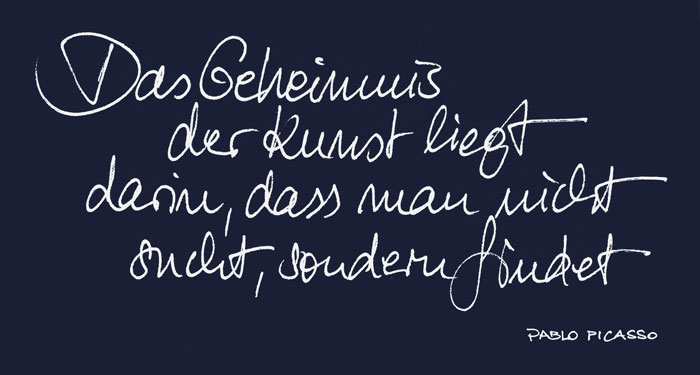 Das Geheimnis
der Kunst liegt
darin, dass man nicht
sucht, sondern findet
PABLO PICASSO